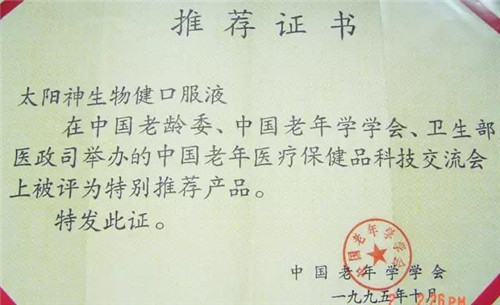 推荐证书
太阳神生物健口服液
在中国老龄委、中国老年学学会、卫生部
医政司举办的中国老年医疗保健品科技交流会
上被评为特别推荐产品。
特发此证。
中国老年学学会
中国老年学学会
一九九五年十月